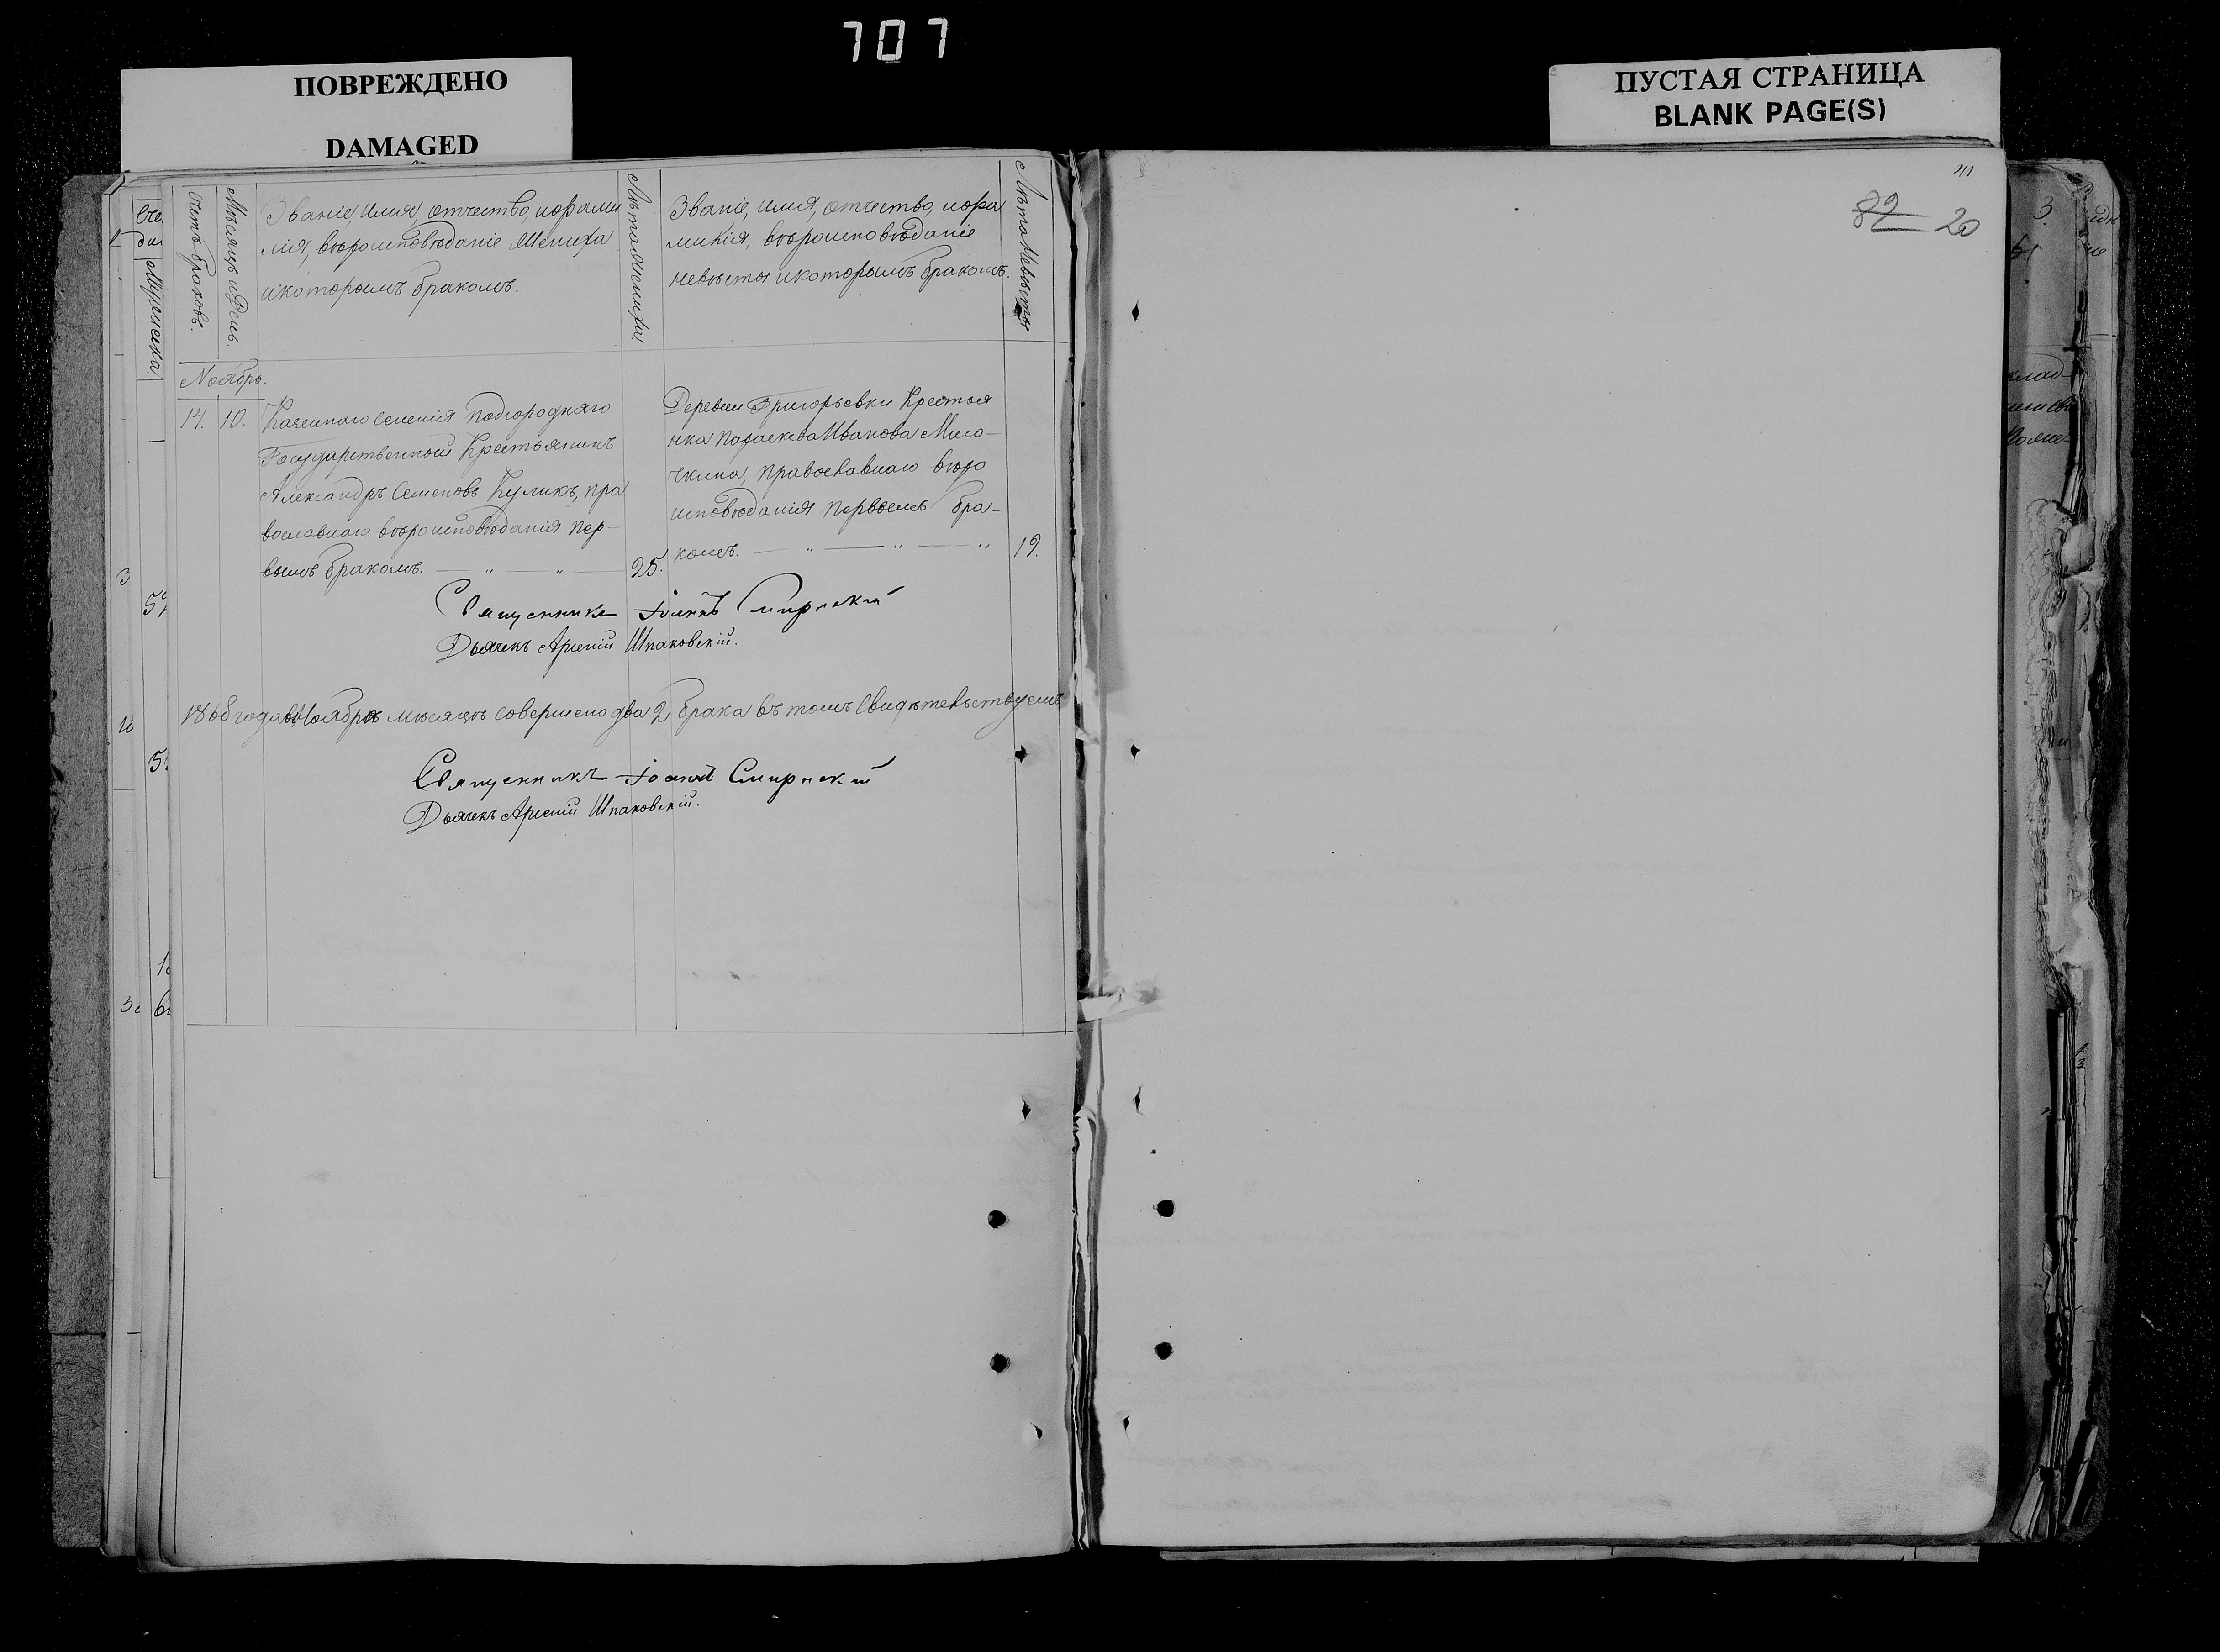 707
ПОВРЕЖДЕНО
DAMAGED
ПУСТАЯ СТРАНИЦА
BLANK PAGE(S)
82 20
Счетъ браковъ.
Мѣсяцъ и День.
Званіе, имя, отчество, и фами
лія, вѣроисповѣданіе Жениха
и которымъ бракомъ.
Лѣта Жениха.
Званіе, имя, отчество, и фа
милія, вѣроисповѣданіе
невѣсты и которымъ бракомъ.
Лѣта Невѣсты
Ноябрь.
14. 10.
Казеннаго Селенія Подгородняго
Государственный Крестьянинъ
Александръ Семеновъ Куликъ, пра
вославнаго вѣроисповѣданія пер-
вымъ бракомъ. — „ — „ —
25.
Деревни Григорьевки Крестья
нка Параскева Иванова
православнаго вѣро
исповѣданія первымъ бра-
комъ. — „ — „ — „
19.
Священникъ Іоаннъ Смирнскій
Дьячекъ Арсеній Шпаковскій.
года въ Ноябрѣ мѣсяцѣ совершено два 2 брака въ томъ Свидѣтельствуемъ
Священникъ Іоаннъ Смирнскій
Дьячекъ Арсеній Шпаковскій.